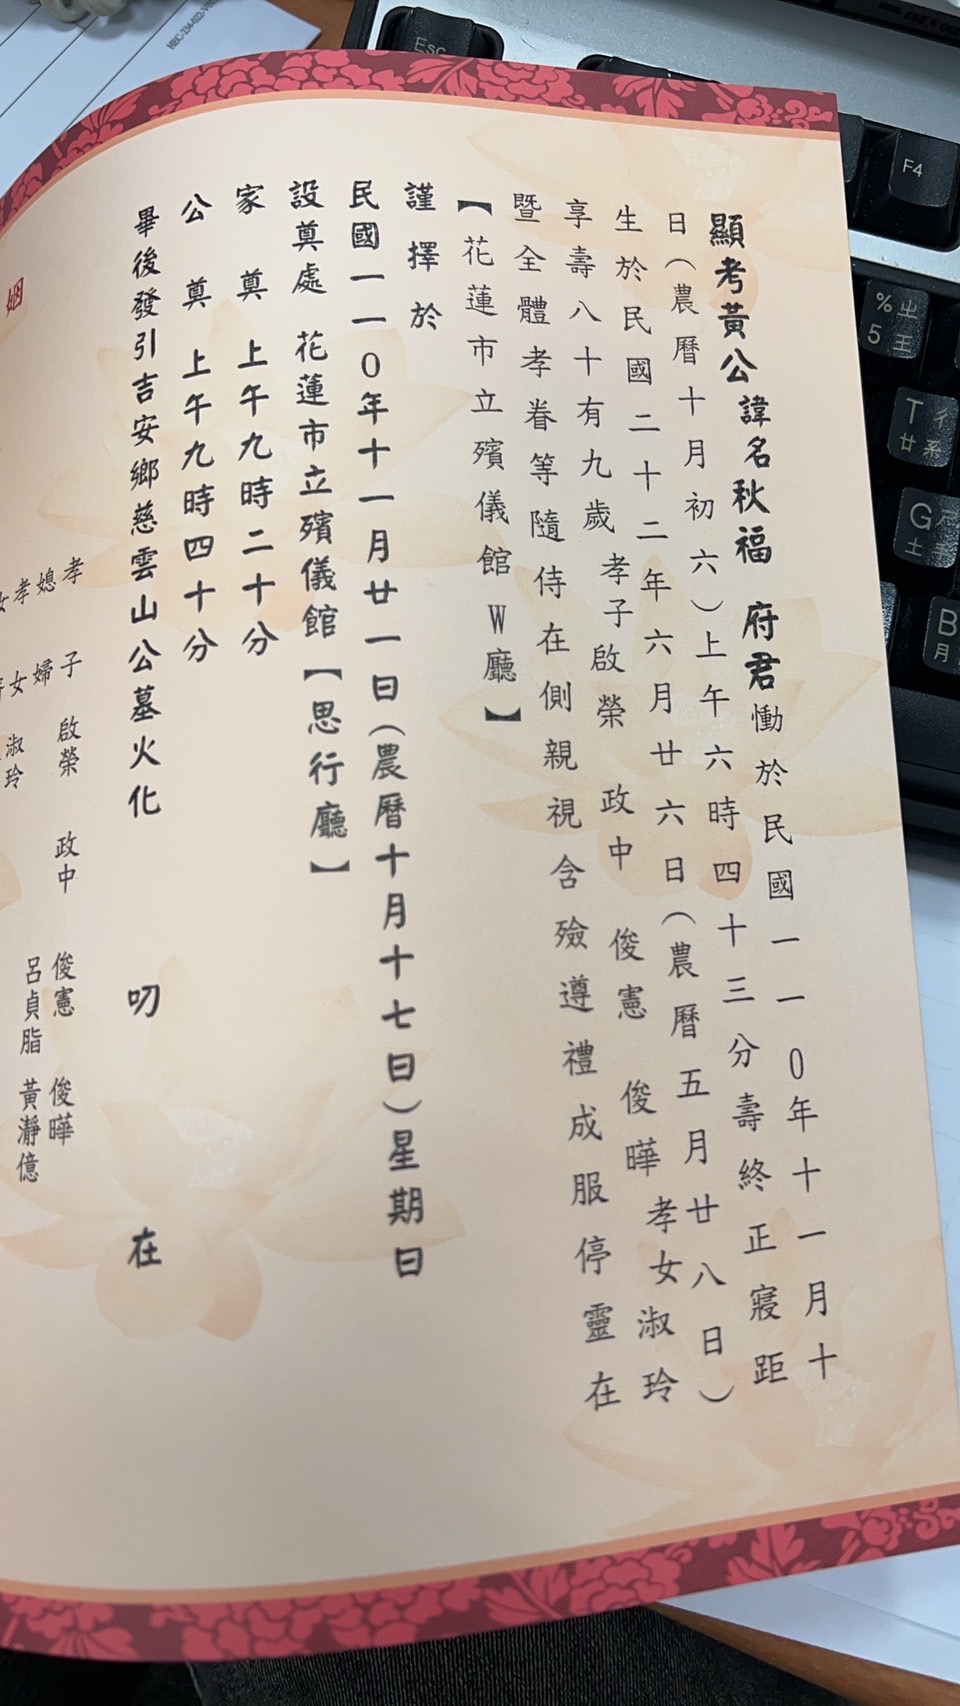 顯考黃公諱名秋福 府君慟於民國一一0年十一月十
日(農曆十月初六)上午六時四十三分壽終正寢距
生於民國二十二年六月廿六日(農曆五月廿八日)
享壽八十有九歲孝子啟榮 政中 俊憲 俊曄孝女淑玲
暨全體孝眷等隨侍在側親視含殮遵禮成服停靈在
【花蓮市立殯儀館W廳】
謹擇於
民國一一0年十一月廿一日(農曆十月十七日)星期日
設奠處 花蓮市立殯儀館【思行廳】
家奠 上午九時二十分
公奠 上午九時四十分
畢後發引吉安鄉慈雲山公墓火化 叨 在
姻
孝子 啟榮 政中 俊憲 俊曄
媳婦 呂貞脂 黃瀞億
孝女 淑玲
Esc
F4
% 5 ㄓ 王
T ㄔ 廿 系
G 土
B 月